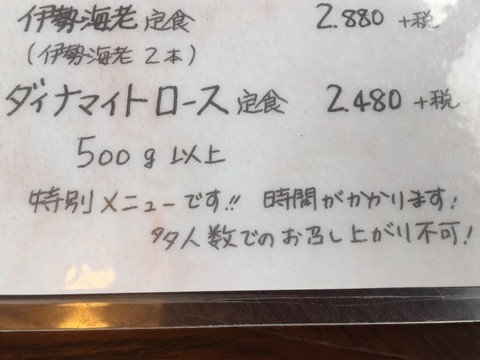 伊勢海老 定食 2.880 +税
(伊勢海老 2本)
ダイナマイトロース 定食 2.480 +税
500g 以上
特別メニューです!! 時間がかかります!
多人数でのお召し上がり不可!